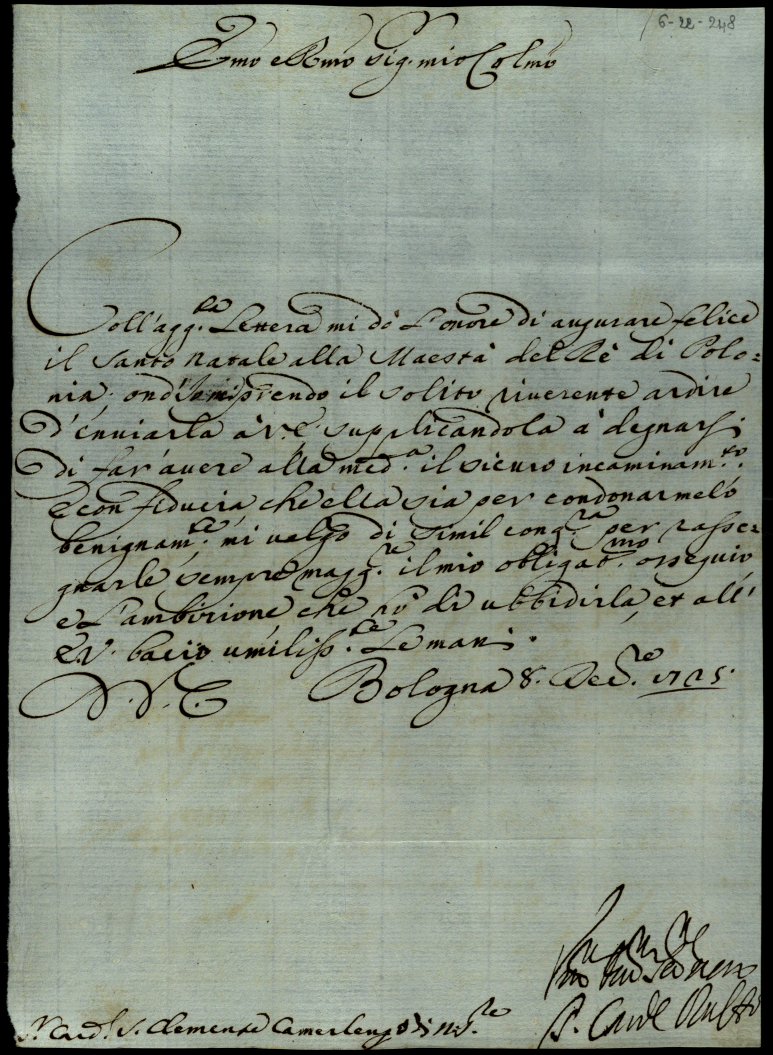 6-22-248
Emo e Rmo Sig. mio Colmo
Coll'agg.ta Lettera mi dò l'onore di augurare felice
il Santo Natale alla Maestà del Rè di Polo=
nia; ond' prendo il solito riverente ardire
d'enviarla à V.E. supplicandola à degnarsi
di far' avere alla med.a il sicuro incaminam.to
E con fiducia, che ella sia per condonarmelo
benignam.te mi valgo di simil cong.ra per rasse=
gnarle sempre magg.re il mio obligat.mo ossequio
e l'ambizione che hò di ubbidirla, et all'
E.V. bacio umiliss.te le mani.
Bologna 8. Dec.re 1725.
S.r Card.l S. Clemente Camerlengo di
Card Ruffo